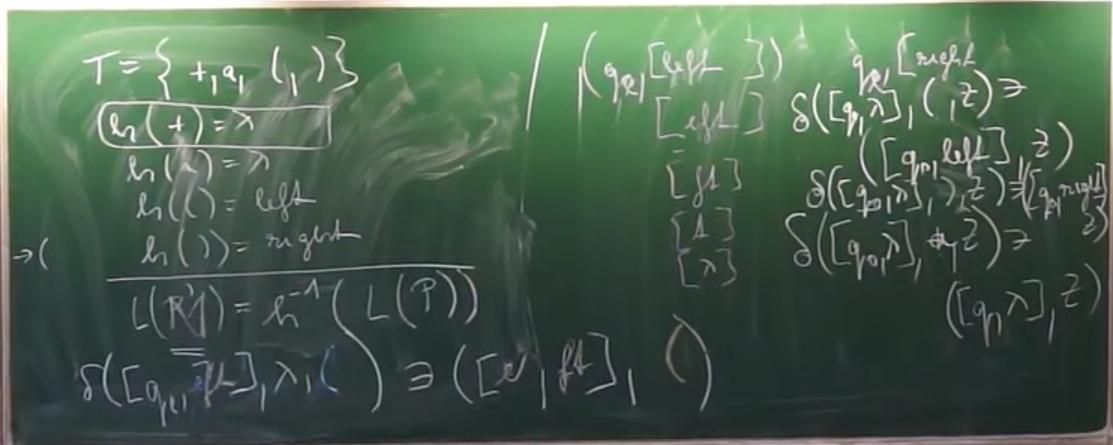 T = { +, a, (, ) }
h(+) = λ
h(a) = λ
h(() = left
h()) = right
→(
L(P1) = h⁻¹(L(P))
δ([q, eft], λ, ( ) ∋ ([q, ft], )
(q, [left])
[eft]
[ft]
[t]
[λ]
q, [right
δ([q, λ], (, Z) ∋
([q, left], Z)
δ([q₀, λ], ), Z) ∋ ([q₀, right], Z)
δ([q₀, λ], a, Z) ∋
([q, λ], Z)